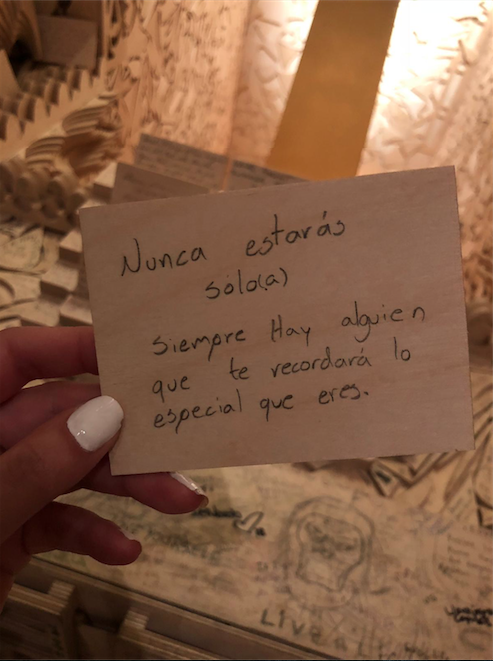 Nunca estarás
solo(a)
siempre Hay alguien
que te recordará lo
especial que eres.
LIVE